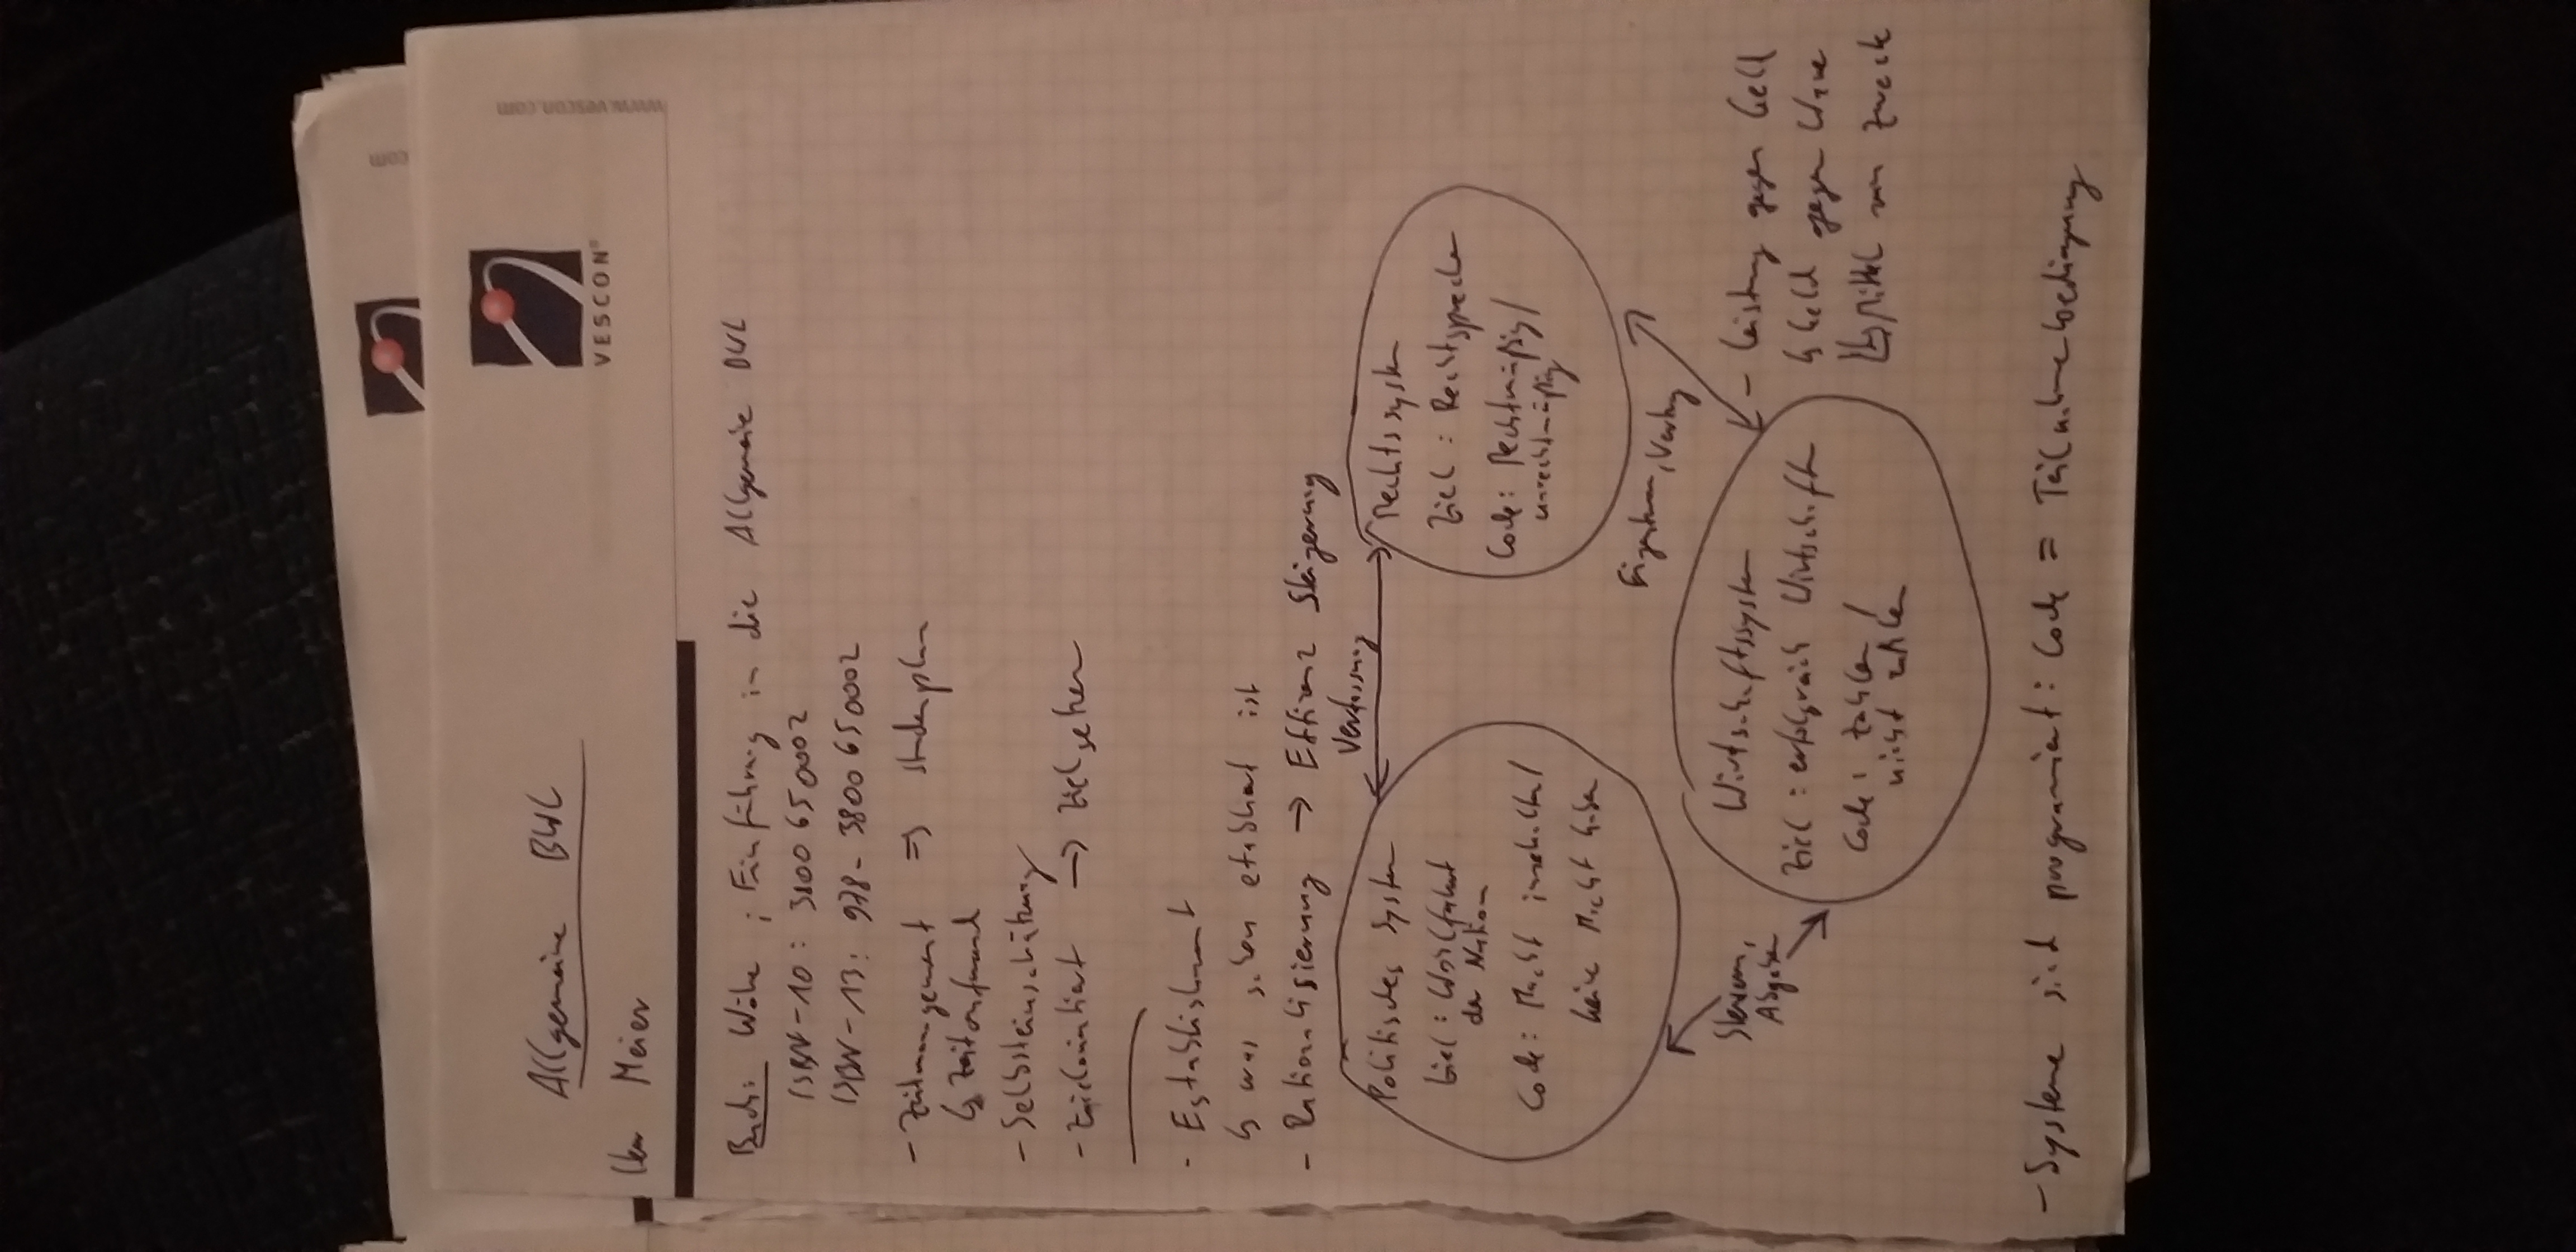 com
VESCON®
www.vescon.com
Allgemeine BWL
Herr Meier
Buch: Wöhe ; Einführung in die Allgemeine BWL
ISBN-10: 3800650002
ISBN-13: 978-3800650002
- Zeitmanagement => Stundenplan
↳ Zeitaufwand
- Selbsteinschätzung
- Zielorientiert → Ziel setzen
- Establishment
↳ was schon etabliert ist
- Rationalisierung → Effizenz Steigerung
Verfassung
Politisches System
Ziel: Wohlfahrt
der Nation
Code: Macht innehalten/
keine Macht haben
Rechtssystem
Ziel: Rechtsprechen
Code: Rechtmäßig/
unrechtmäßig
Eigentum, Vertrag
Steuern,
Abgaben
Wirtschaftssystem
Ziel: erfolgreich Wirtschaften
Code: Zahlen /
nicht zahlen
- Leistung gegen Geld
↳ Geld gegen Ware
↳ Mittel zum Zweck
- Systeme sind programiert: Code = Teilnahmebedingung